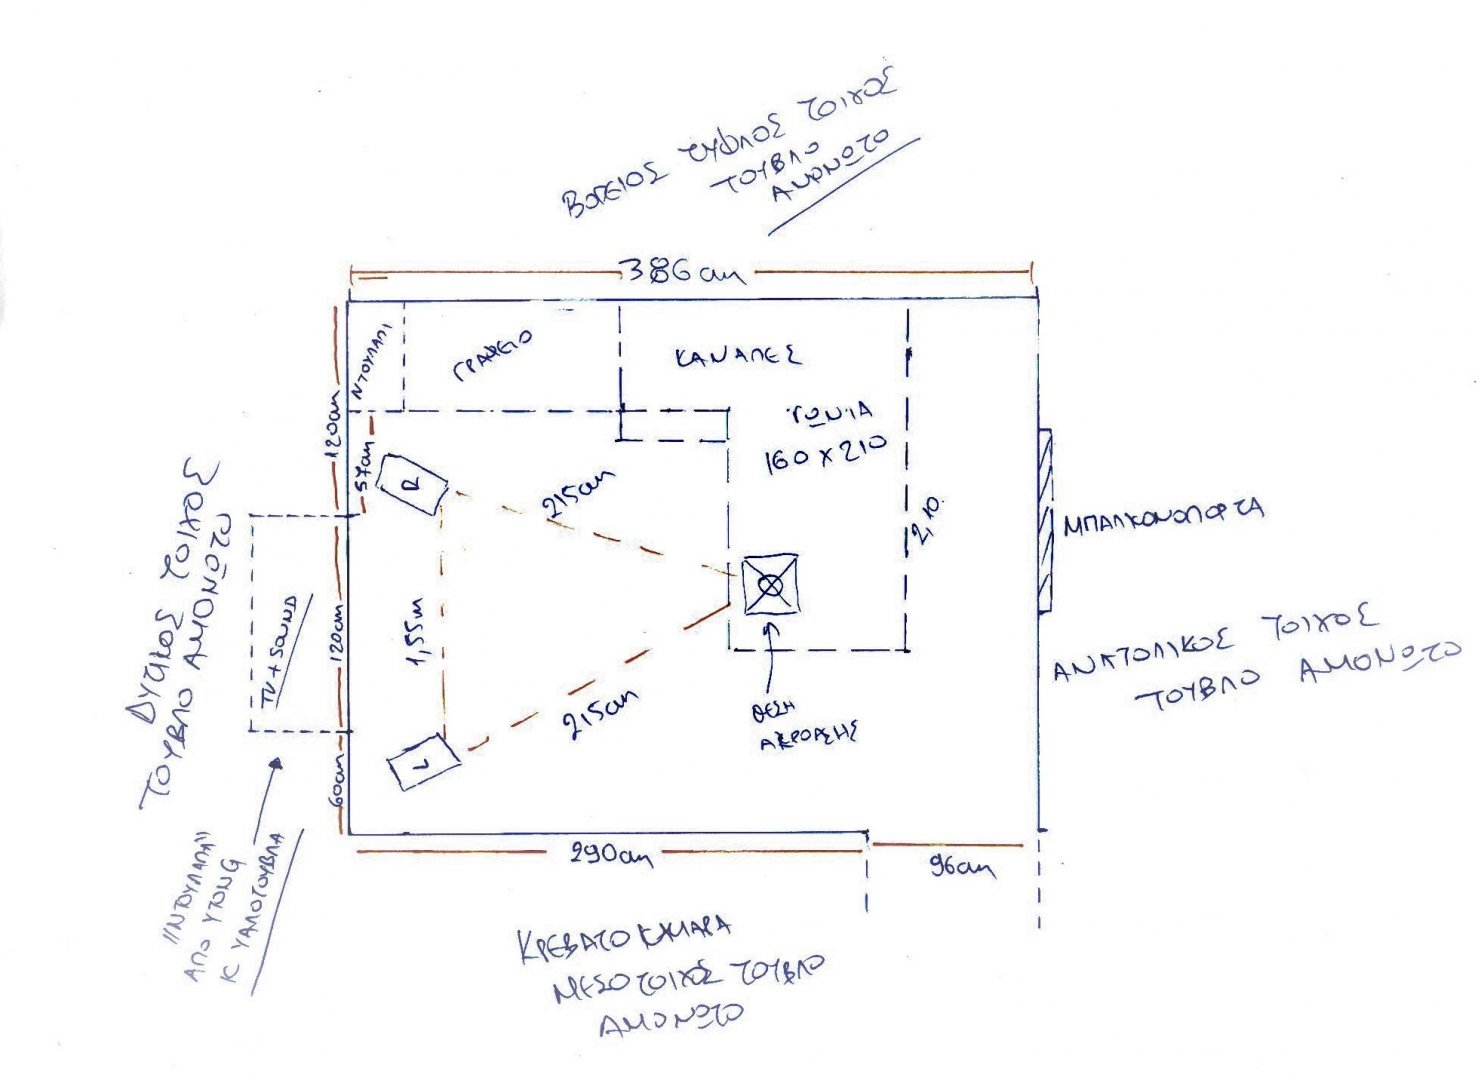 ΒΟΡΕΙΟΣ ΤΥΦΛΟΣ ΤΟΙΧΟΣ
ΤΟΥΒΛΟ
ΑΜΟΝΩΤΟ
386 cm
ΝΤΟΥΛΑΠΙ
ΓΡΑΦΕΙΟ
ΚΑΝΑΠΕΣ
ΓΩΝΙΑ
160 x 210
2,10.
120cm
57cm
R
215cm
ΜΠΑΛΚΟΝΟΠΟΡΤΑ
ΔΥΤΙΚΟΣ ΤΟΙΧΟΣ
ΤΟΥΒΛΟ ΑΜΟΝΩΤΟ
TV + SOUND
120cm
1,55m
215cm
ΘΕΣΗ
ΑΚΡΟΑΣΗΣ
ΑΝΑΤΟΛΙΚΟΣ ΤΟΙΧΟΣ
ΤΟΥΒΛΟ ΑΜΟΝΩΤΟ
L
60cm
"ΝΤΟΥΛΑΠΑ"
ΑΠΟ YTONG
Κ ΥΑΛΟΤΟΥΒΛΑ
290cm
96cm
ΚΡΕΒΑΤΟΚΑΜΑΡΑ
ΜΕΣΟΤΟΙΧΟΣ ΤΟΥΒΛΟ
ΑΜΟΝΩΤΟ